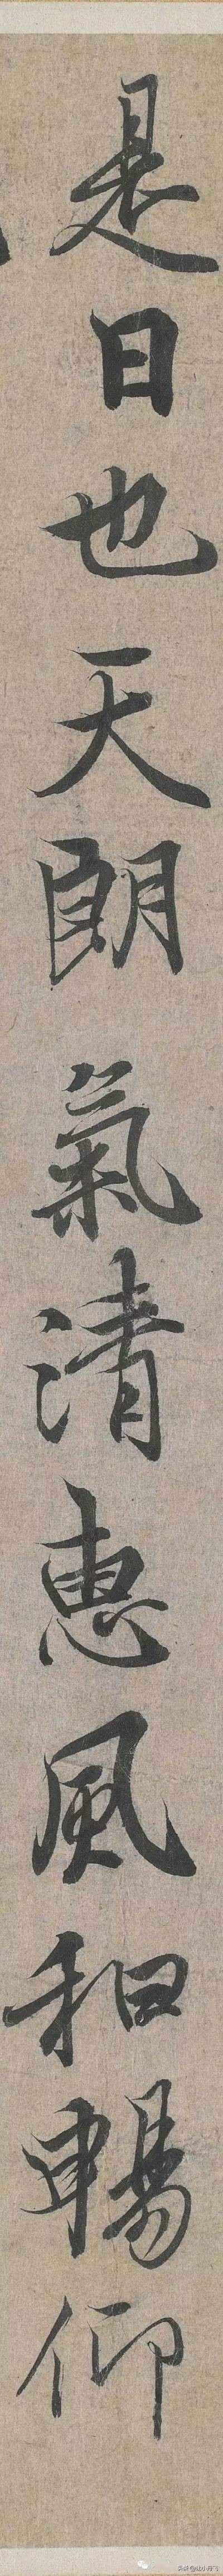 是日也天朗氣清惠風和暢仰